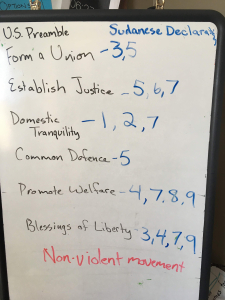 U.S. Preamble Sudanese Declarat
Form a Union - 3,5
Establish Justice - 5, 6, 7
Domestic
Tranquility - 1, 2, 7
Common Defence - 5
Promote Welfare - 4, 7, 8, 9
Blessings of Liberty - 3, 4, 7, 9
Non-violent movement